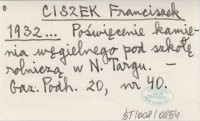 CISZEK Franciszek
1932... Poświęcenie kamie-
nia węgielnego pod szkołę
rolniczą w N. Targu. –
Gaz. Podh. 20, nr 40.
BT/008/0854